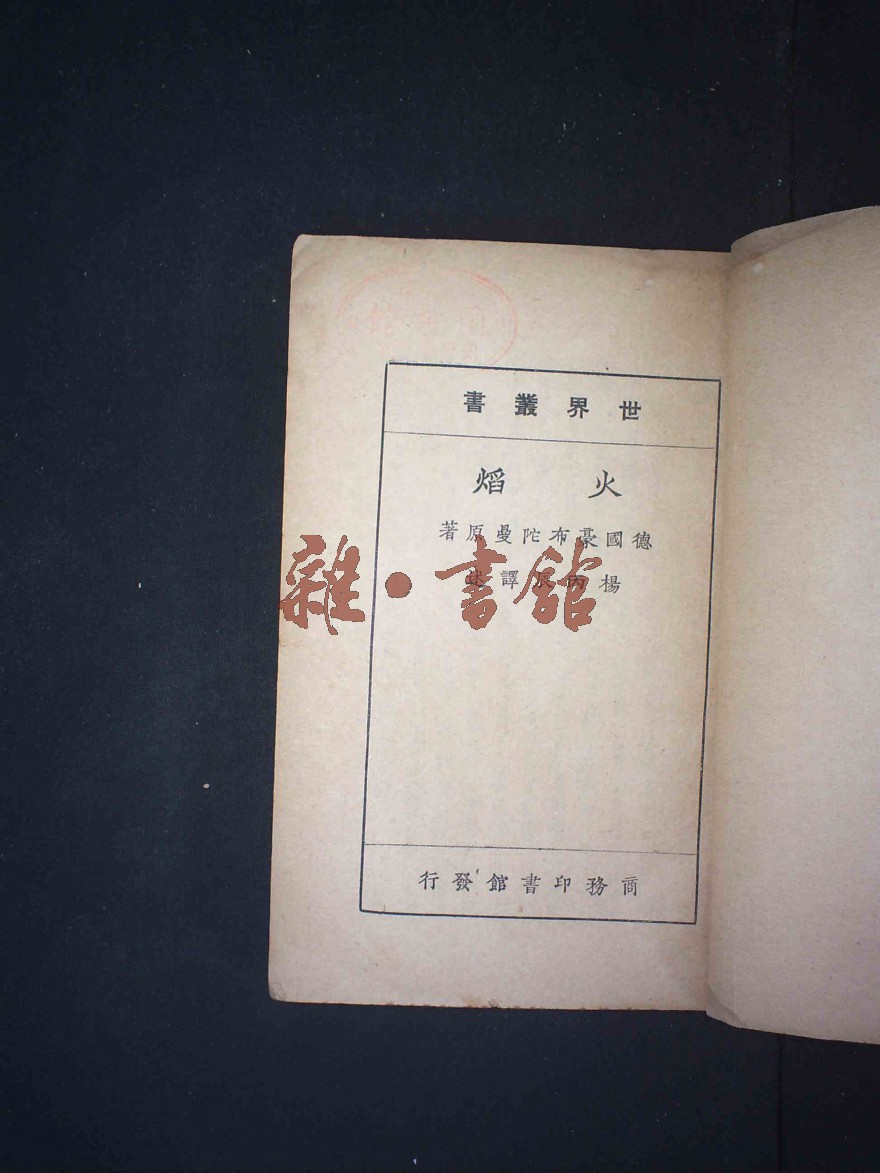 世界叢書
火熖
德國豪布陀曼原著
楊丙辰譯述
雜·書館
商務印書館發行